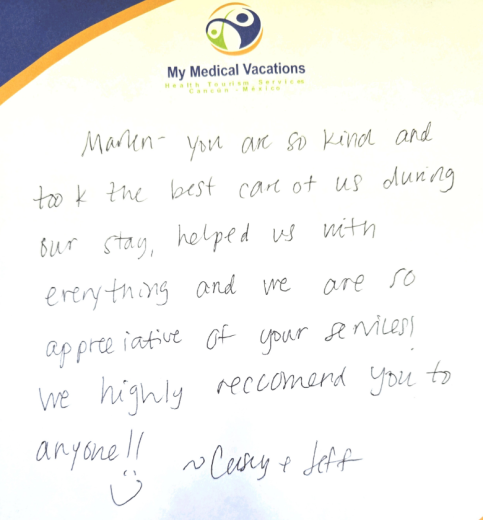 My Medical Vacations
Health Tourism Services
Cancun - Mexico
Marlen- you are so kind and
took the best care of us during
our stay, helped us with
everything and we are so
appreciative of your services!
we highly reccomend you to
anyone!!
~ Casey + Jeff